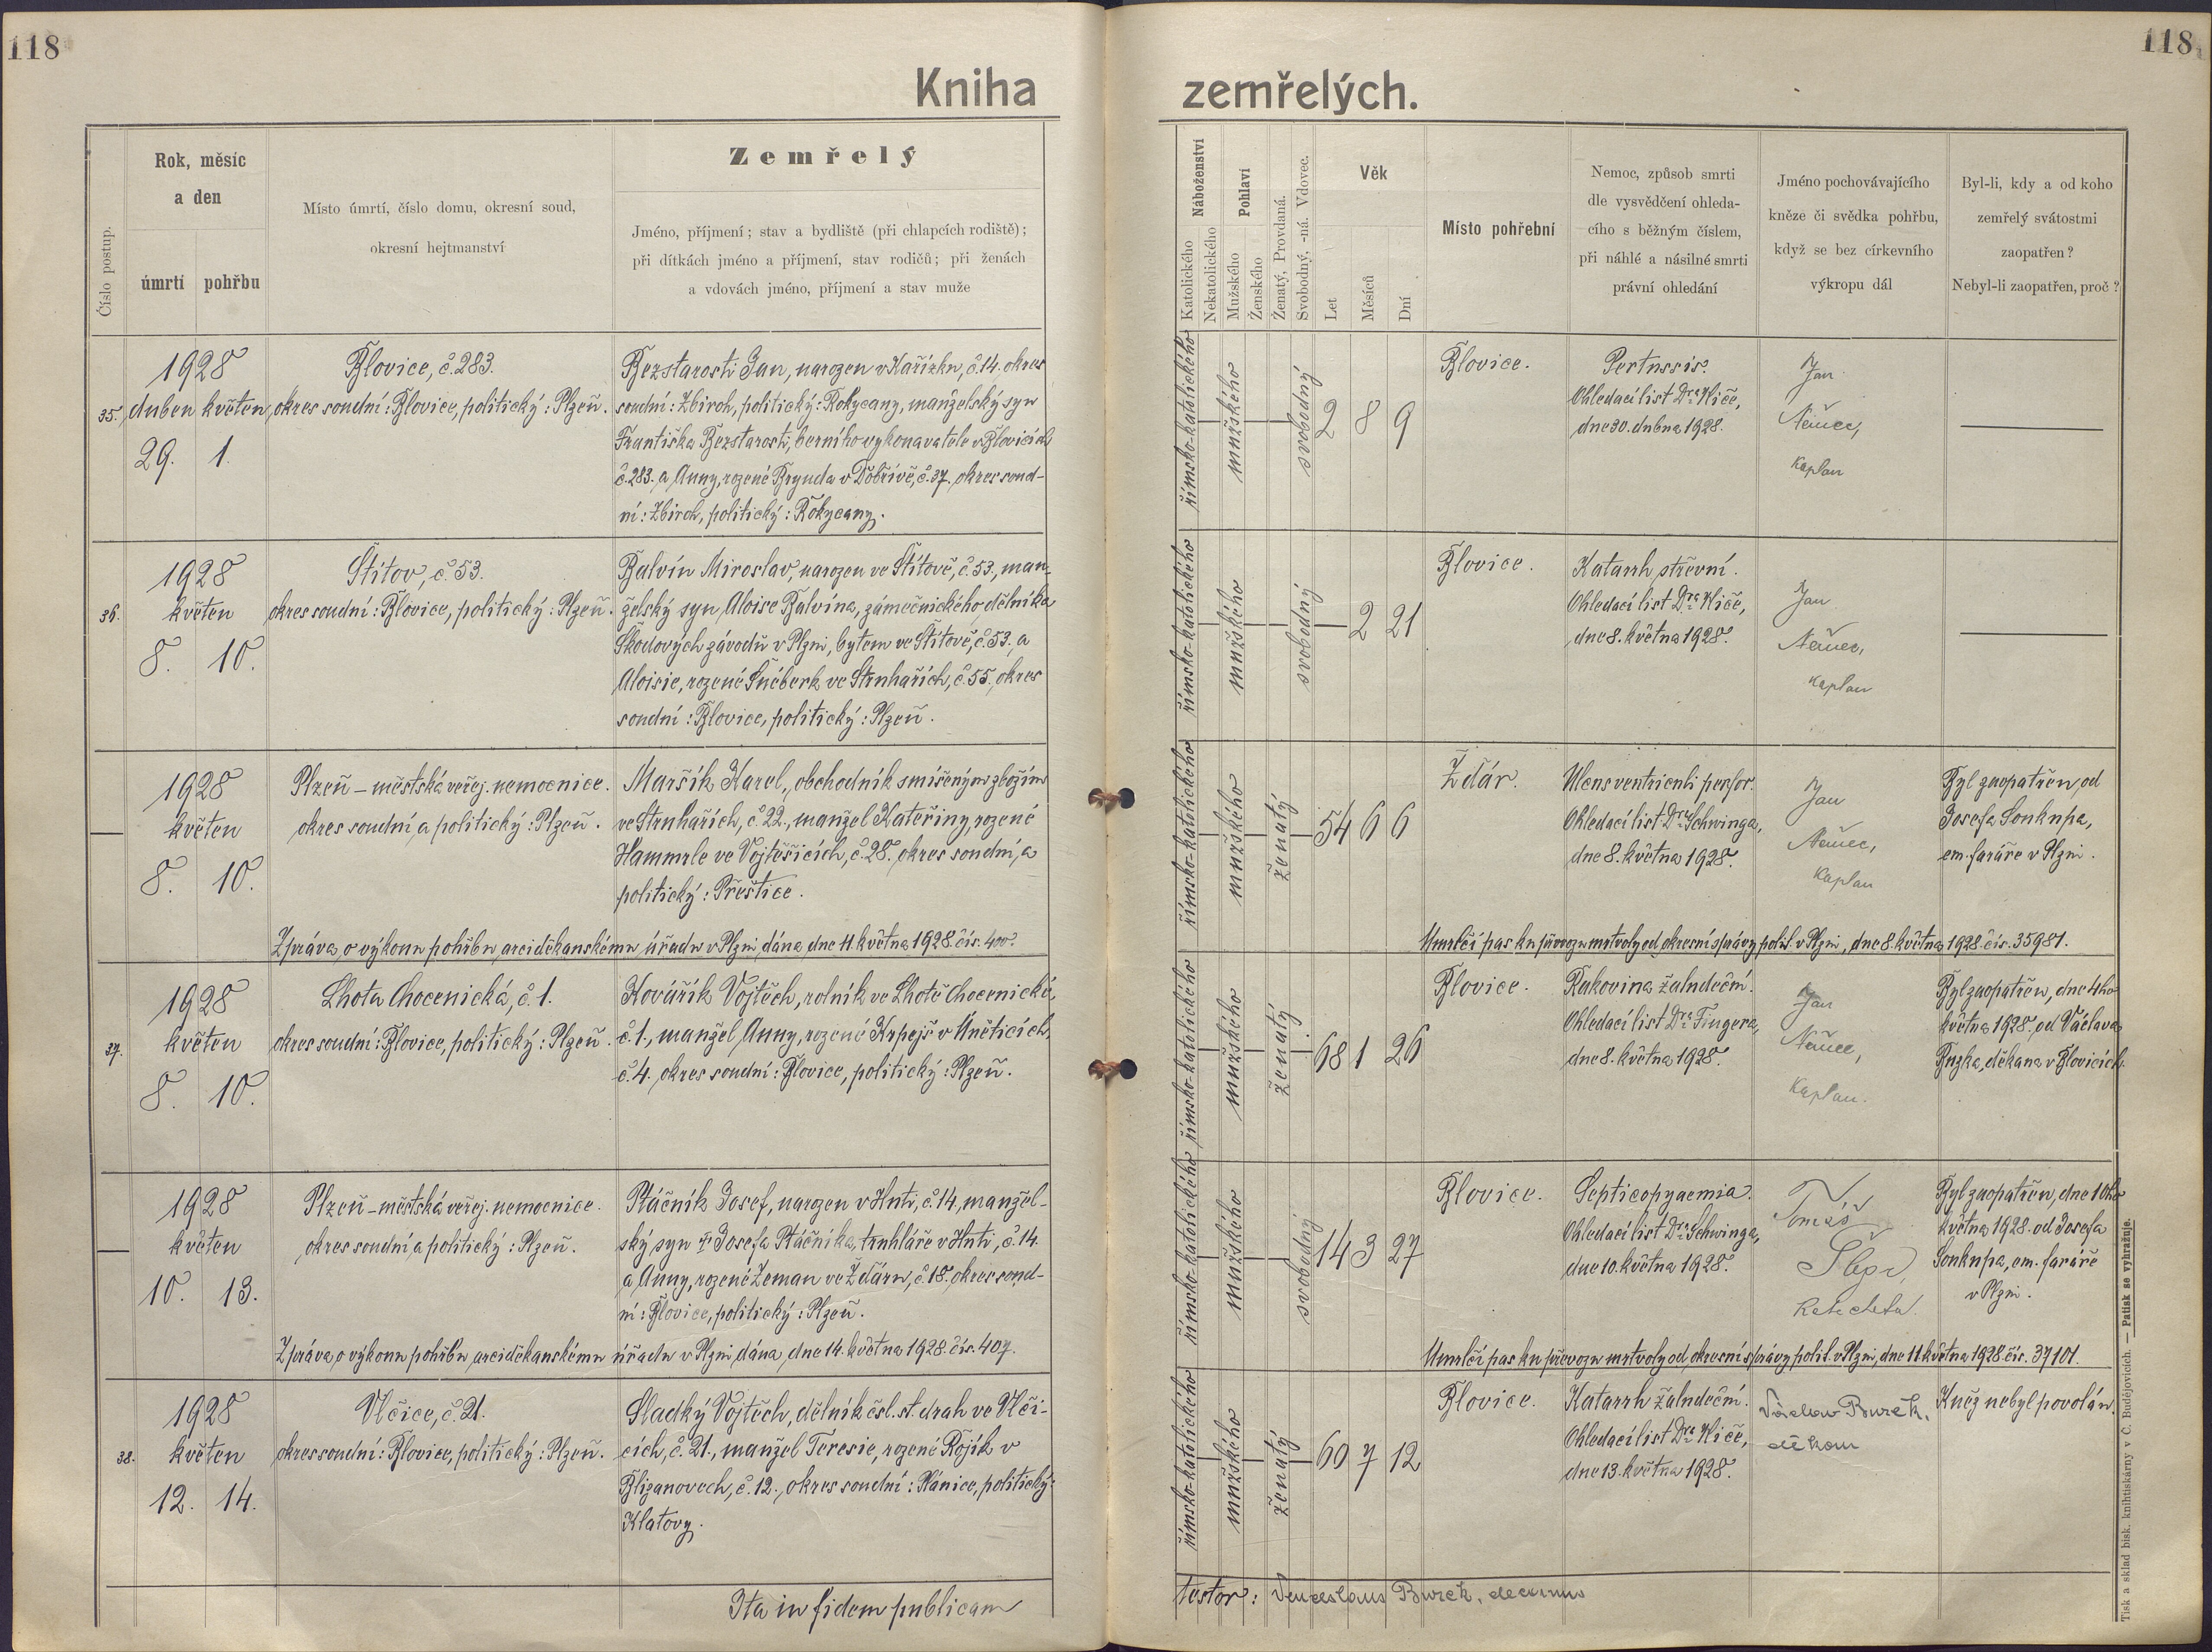 118
118
Kniha zemřelých.
Číslo postup.
Rok, měsíc
a den
úmrtí pohřbu
Místo úmrtí, číslo domu, okresní soud,
okresní hejtmanství
Zemřelý
Jméno, příjmení; stav a bydliště (při chlapcích rodiště);
při dítkách jméno a příjmení, stav rodičů; při ženách
a vdovách jméno, příjmení a stav muže
Náboženství
Katolického
Nekatolického
Pohlaví
Mužského
Ženského
Ženatý, Provdaná.
Svobodný, -ná. Vdovec.
Věk
Let
Měsíců
Dní
Místo pohřební
Nemoc, způsob smrti
dle vysvědčení ohleda-
cího s běžným číslem,
při náhlé a násilné smrti
právní ohledání
Jméno pochovávajícího
kněze či svědka pohřbu,
když se bez církevního
výkropu dál
Byl-li, kdy a od koho
zemřelý svátostmi
zaopatřen?
Nebyl-li zaopatřen, proč?
35.
1928
duben květen
29. 1.
Blovice, č. 283.
okres soudní: Blovice, politický: Plzeň.
Bezstarosti Jan, narozen v Kařízku, č. 14. okres
soudní: Zbiroh, politický: Rokycany, manželský syn
Františka Bezstarosti, berního vykonavatele v Blovicích
č. 283. a Anny, rozené Brynda v Dobřívě, č. 37. okres soud-
ní: Zbiroh, politický: Rokycany.
římsko-katolického
mužského
svobodný
2 8 9
Blovice.
Pertussis.
Ohledací list Dra Kliče,
dne 30. dubna 1928.
Jan
Němec,
kaplan
36.
1928
květen
8. 10.
Štítov, č. 53.
okres soudní: Blovice, politický: Plzeň.
Balvín Miroslav, narozen ve Štítově, č. 53., man-
želský syn Aloise Balvína, zámečnického dělníka
Škodových závodů v Plzni, bytem ve Štítově, č. 53. a
Aloisie, rozené Šnéberk ve Struhařích, č. 55., okres
soudní: Blovice, politický: Plzeň.
římsko-katolického
mužského
svobodný
2 21
Blovice.
Katarrh střevní.
Ohledací list Dra Kliče,
dne 8. května 1928.
Jan
Němec,
kaplan
1928
květen
8. 10.
Plzeň – městská veřej. nemocnice.
okres soudní a politický: Plzeň.
Maršík Karel, obchodník smíšeným zbožím
ve Struhařích, č. 22., manžel Kateřiny, rozené
Hammrle ve Vojtěšicích, č. 28. okres soudní a
politický: Přeštice.
Zpráva o výkonu pohřbu arciděkanskému úřadu v Plzni dána dne 11. května 1928. čís. 400.
římsko-katolického
mužského
ženatý
54 6 6
Ždár.
Ulcus ventriculi perfor.
Ohledací list Dra Schwinga,
dne 8. května 1928.
Jan
Němec,
kaplan
Byl zaopatřen od
Josefa Soukupa,
em. faráře v Plzni.
Umrlčí pas ku převozu mrtvoly od okresní správy polit. v Plzni, dne 8. května 1928. čís. 35981.
37.
1928
květen
8. 10.
Lhota Chocenická, č. 1.
okres soudní: Blovice, politický: Plzeň.
Kovářík Vojtěch, rolník ve Lhotě Chocenické,
č. 1., manžel Anny, rozené Krpejš v Úněticích,
č. 4. okres soudní: Blovice, politický: Plzeň.
římsko-katolického
mužského
ženatý
68 1 26
Blovice.
Rakovina žaludeční.
Ohledací list Dra Fingera,
dne 8. května 1928.
Jan
Němec,
kaplan.
Byl zaopatřen, dne 4ho
května 1928. od Václava
děkana v Blovicích.
1928
květen
10. 13.
Plzeň – městská veřej. nemocnice.
okres soudní a politický: Plzeň.
Ptáčník Josef, narozen v Huti, č. 14., manžel-
ský syn Josefa Ptáčníka, truhláře v Huti, č. 14.
a Anny, rozené Zeman ve Ždáru, č. 18., okres soud-
ní: Blovice, politický: Plzeň.
Zpráva o výkonu pohřbu arciděkanskému úřadu v Plzni dána dne 14. května 1928. čís. 407.
římsko-katolického
mužského
svobodný
14 3 27
Blovice.
Septicopyaemia.
Ohledací list Dra Schwinga,
dne 10. května 1928.
Tomáš
katecheta.
Byl zaopatřen, dne 10ho
května 1928. od Josefa
Soukupa, em. faráře
v Plzni.
Umrlčí pas ku převozu mrtvoly od okresní správy polit. v Plzni, dne 11. května 1928. čís. 37101.
38.
1928
květen
12. 14.
Vlčice, č. 21.
okres soudní: Blovice, politický: Plzeň.
Sladký Vojtěch, dělník čsl. st. drah ve Vlči-
cích, č. 21., manžel Teresie, rozené Rojík v
Blizanovech, č. 12., okres soudní: Plánice, politický:
Klatovy.
římsko-katolického
mužského
ženatý
60 7 12
Blovice.
Katarrh žaludeční.
Ohledací list Dra Kliče,
dne 13. května 1928.
Václav
děkan
Kněz nebyl povolán.
Ita in fidem publicam
testor: Venceslaus decanus
Tisk a sklad bisk. knihtiskárny v Č. Budějovicích. — Patisk se vyhražuje.